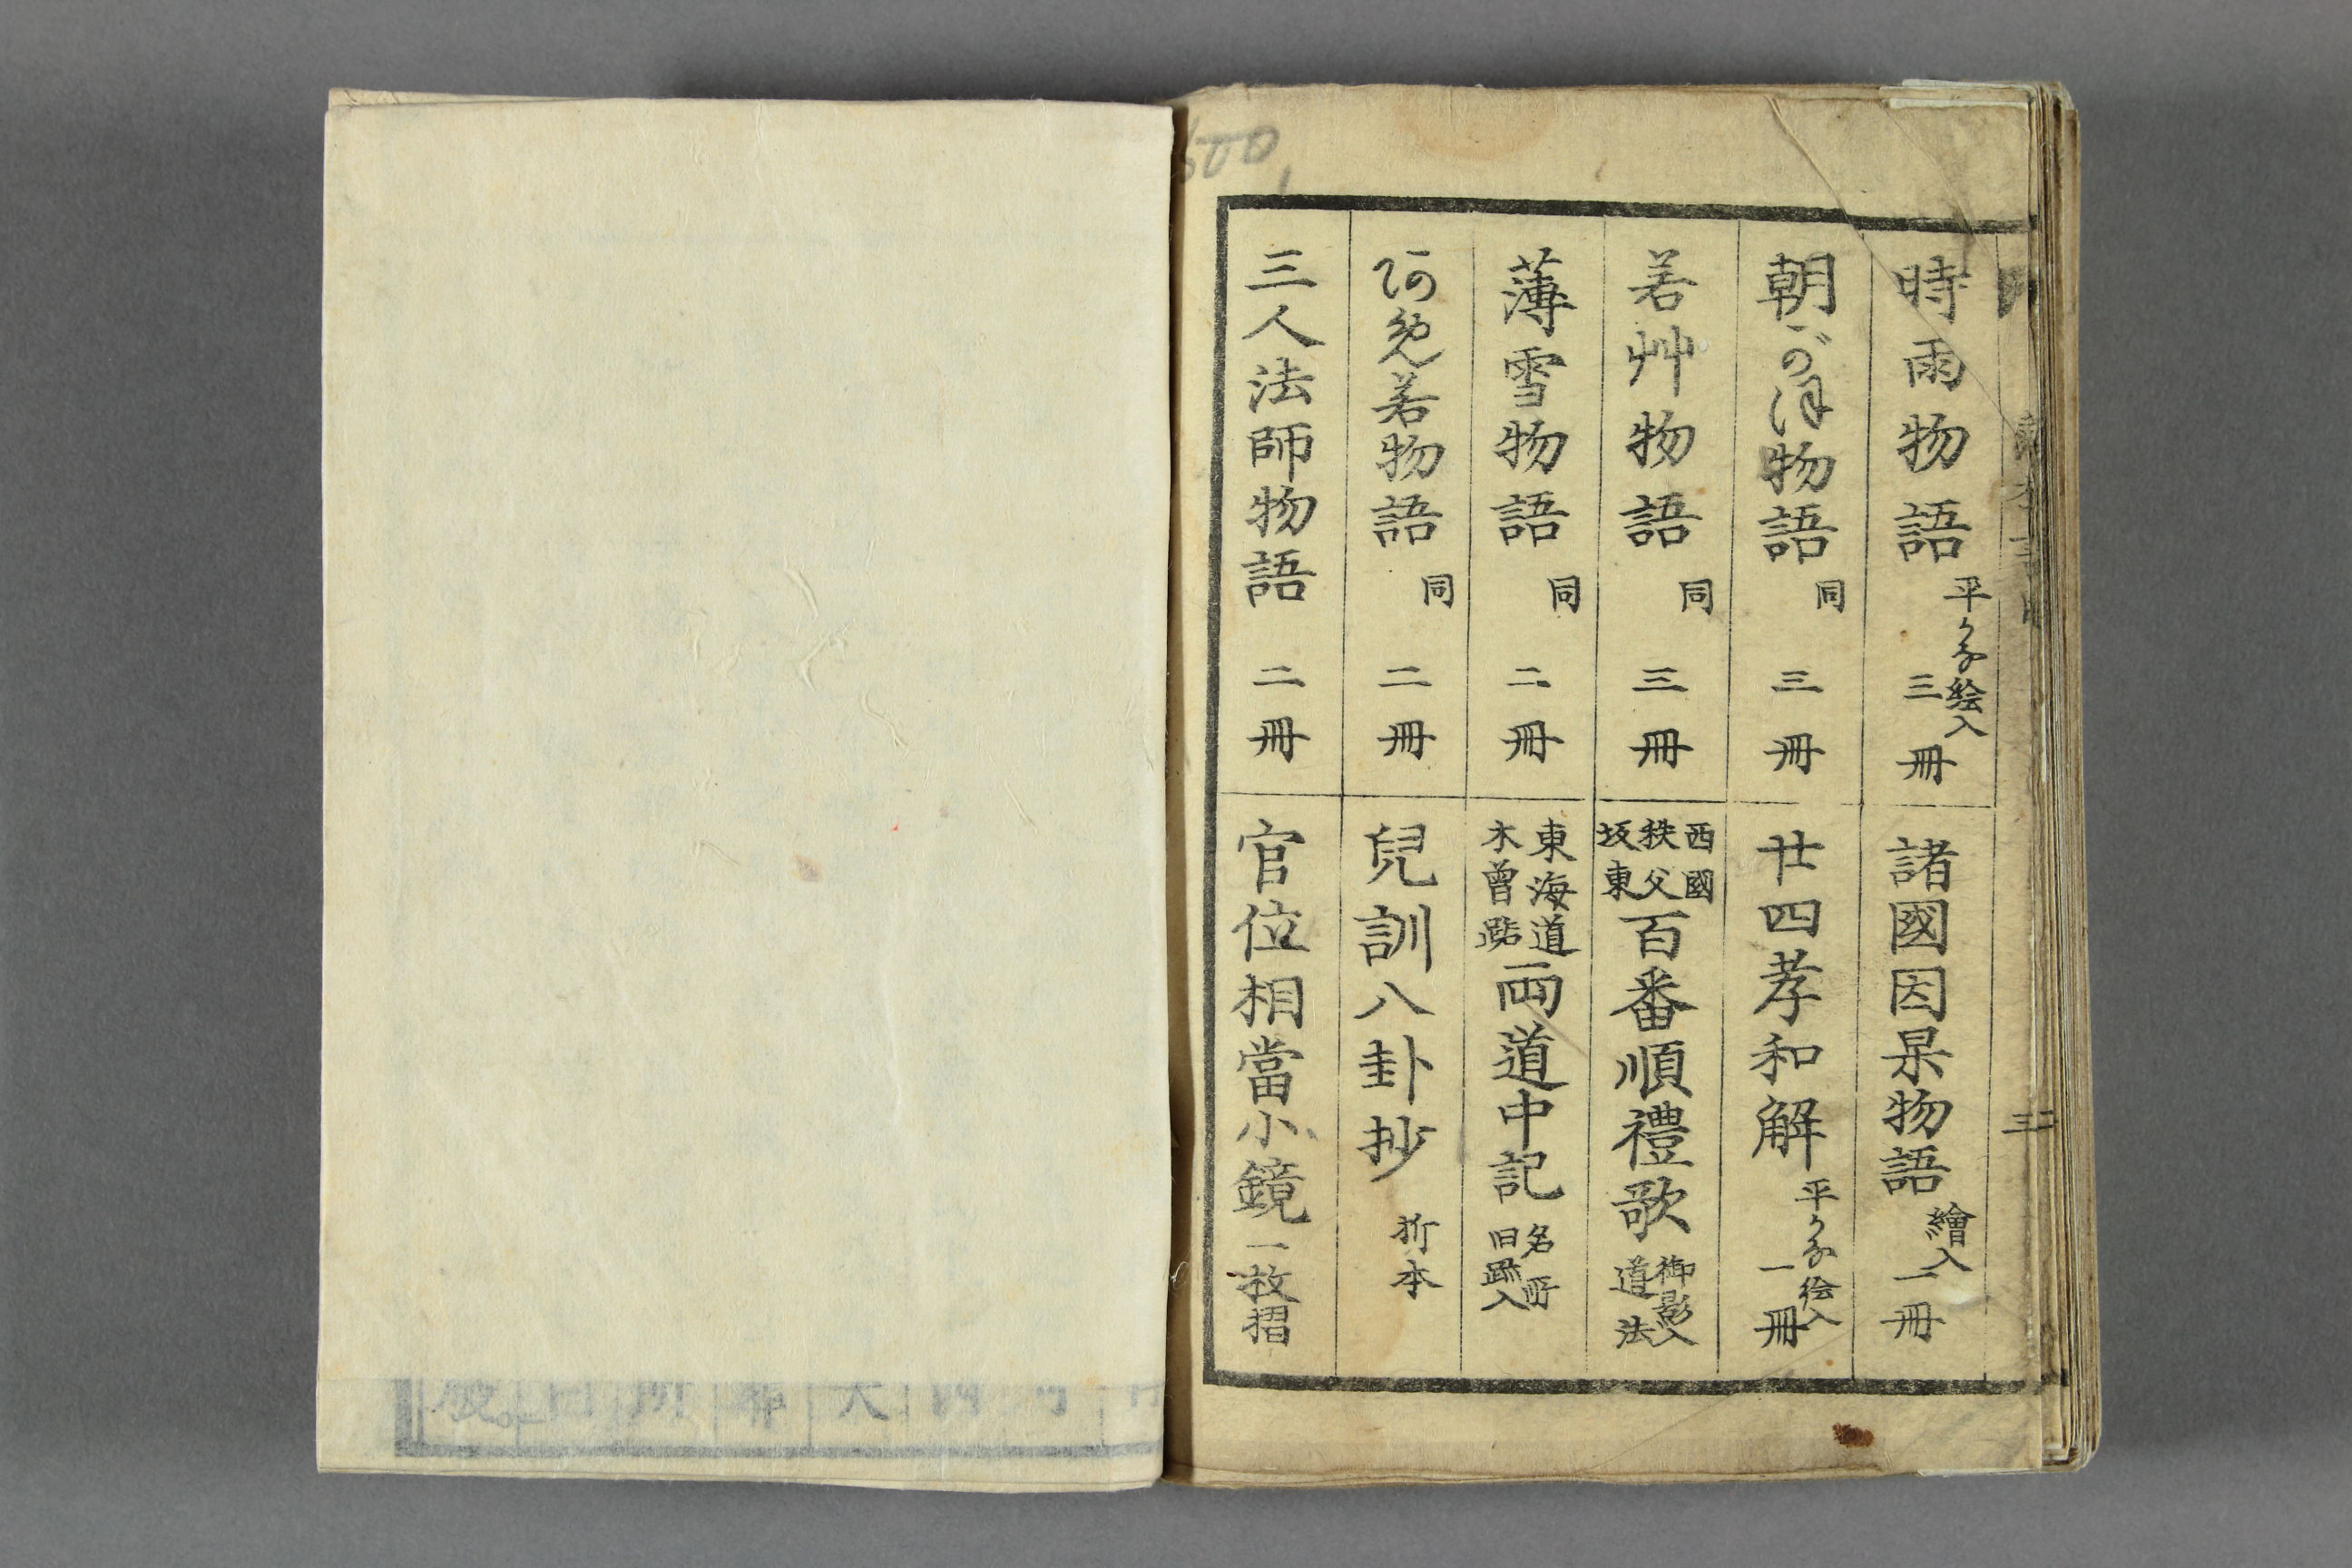 時雨物語 平かな絵入 三冊
朝がほ物語 同 三冊
若艸物語 同 三冊
薄雪物語 同 二冊
物語 同 二冊
三人法師物語 二冊
諸國因果物語 繪入 一冊
廿四孝和解 平かな絵入 一冊
西國 秩父 坂東 百番順禮歌 御影入 道法
東海道 木曽路 両道中記 名所 旧跡入
兒訓八卦抄 折本
官位相當小鏡 一枚摺